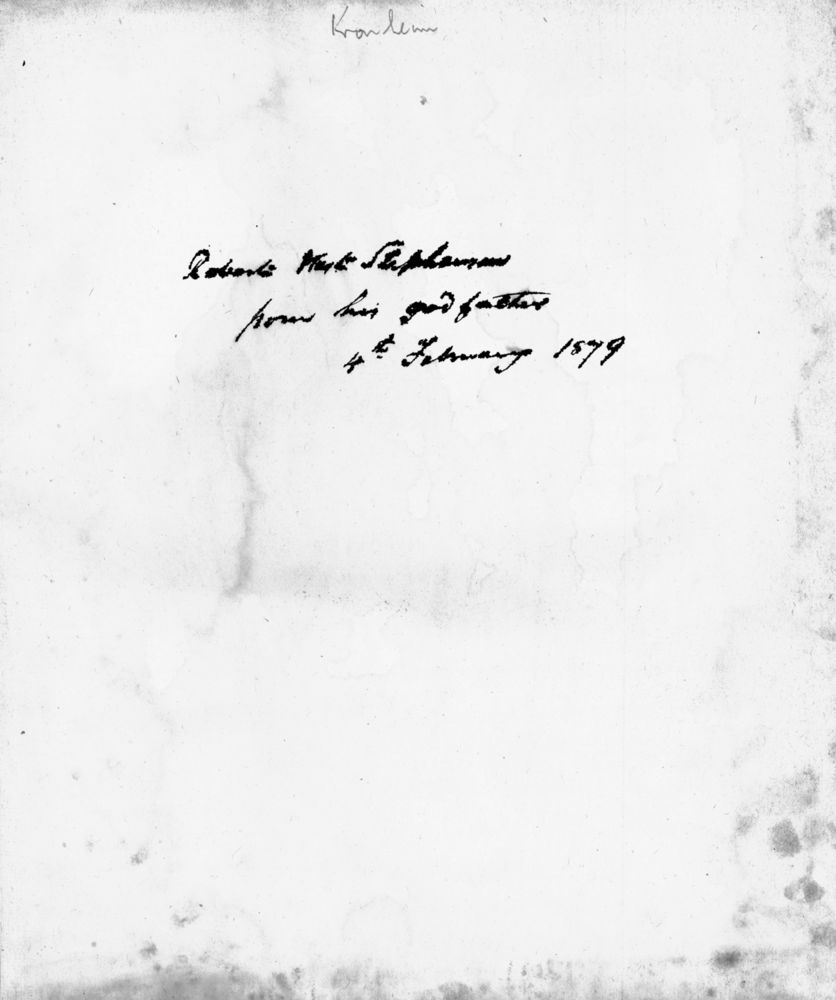 Robert West Stephenson
from his godfather
4th February 1879